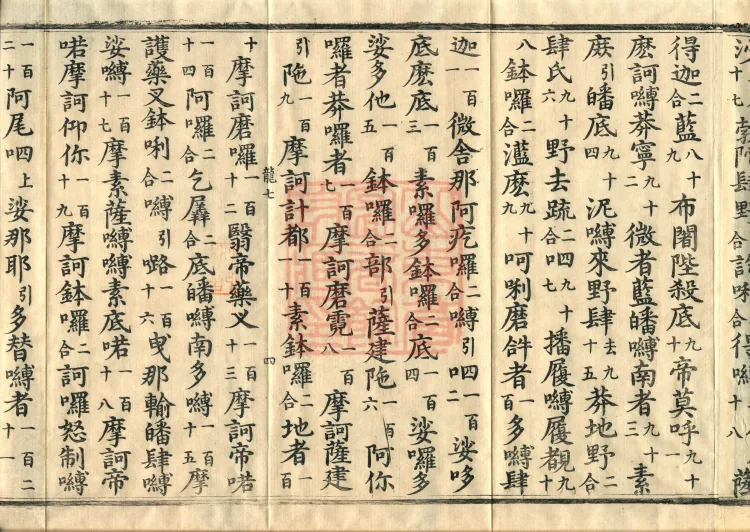 沙十七勃陀肆野二合訶味合得嚩十八薩
得迦二合藍八十九布闍陛殺底九十帝莫呼九十一
麽訶嚩莽寧九十二微者藍皤嚩南者九十三素
麽引皤底九十四泥嚩來野肆去九十五莽地野二合
肆氏九十六野去疏二合四九十七播履嚩履覩九十
八鉢囉二合濫麽九十九呵唎磨誶者一百多嚩肆
迦一百一微舍那阿疙囉二合嚩引四一百二娑哆
底麽底一百三素囉多鉢囉二合底一百四娑囉多
娑多他一百五鉢囉二合部引薩建陁一百六阿你
囉者莽囉者一百七摩訶磨霓一百八摩訶薩建
引陁一百九摩訶計都一百一十素鉢囉二合地者一百
龍七 四
十摩訶磨囉一百十二翳帝藥叉一百十三摩訶喏
一百十四阿囉二合乞羼二合底皤嚩南多嚩一百十五摩
護藥叉鉢唎二合嚩引𡀔一百十六曳那輸皤肆嚩
娑嚩一百十七摩素薩嚩嚩素底喏一百十八摩訶帝
喏摩訶仰你一百十九摩訶鉢囉二合訶囉怒制嚩
一百二十阿尾呬上娑那耶引多替嚩者一百二十一